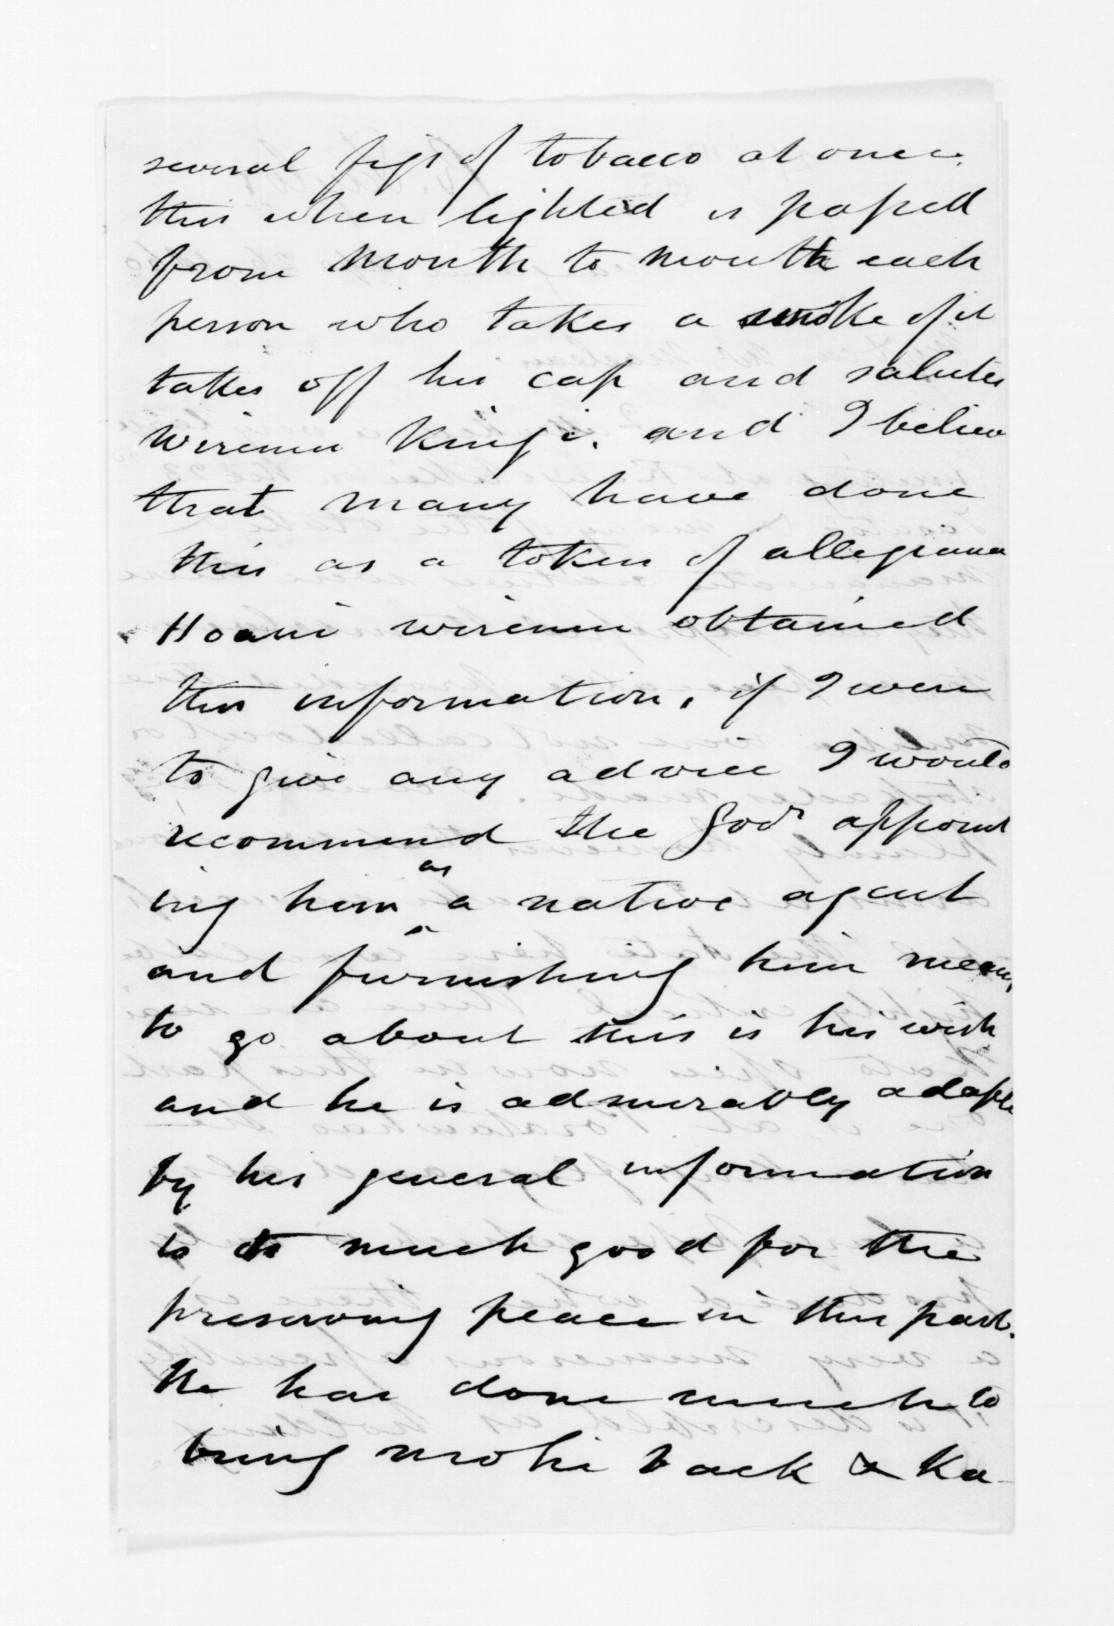 several figs of tobacco at once.
this when lighted is passed
from mouth to mouth each
person who takes a smoke of it
takes off his cap and salutes
Wiremu Kingi. and I believe
that many have done
this as a token of allegiance
Hoani wiremu obtained
this information, if I were
to give any advice I would
recommend the Govr appoint
ing him as a native agent
and furnishing him means
to go about this is his wish
and he is admirably adapted
by his general information
to do much good for the
preserving peace in this part.
He has done much to
bring mohi back & Ka